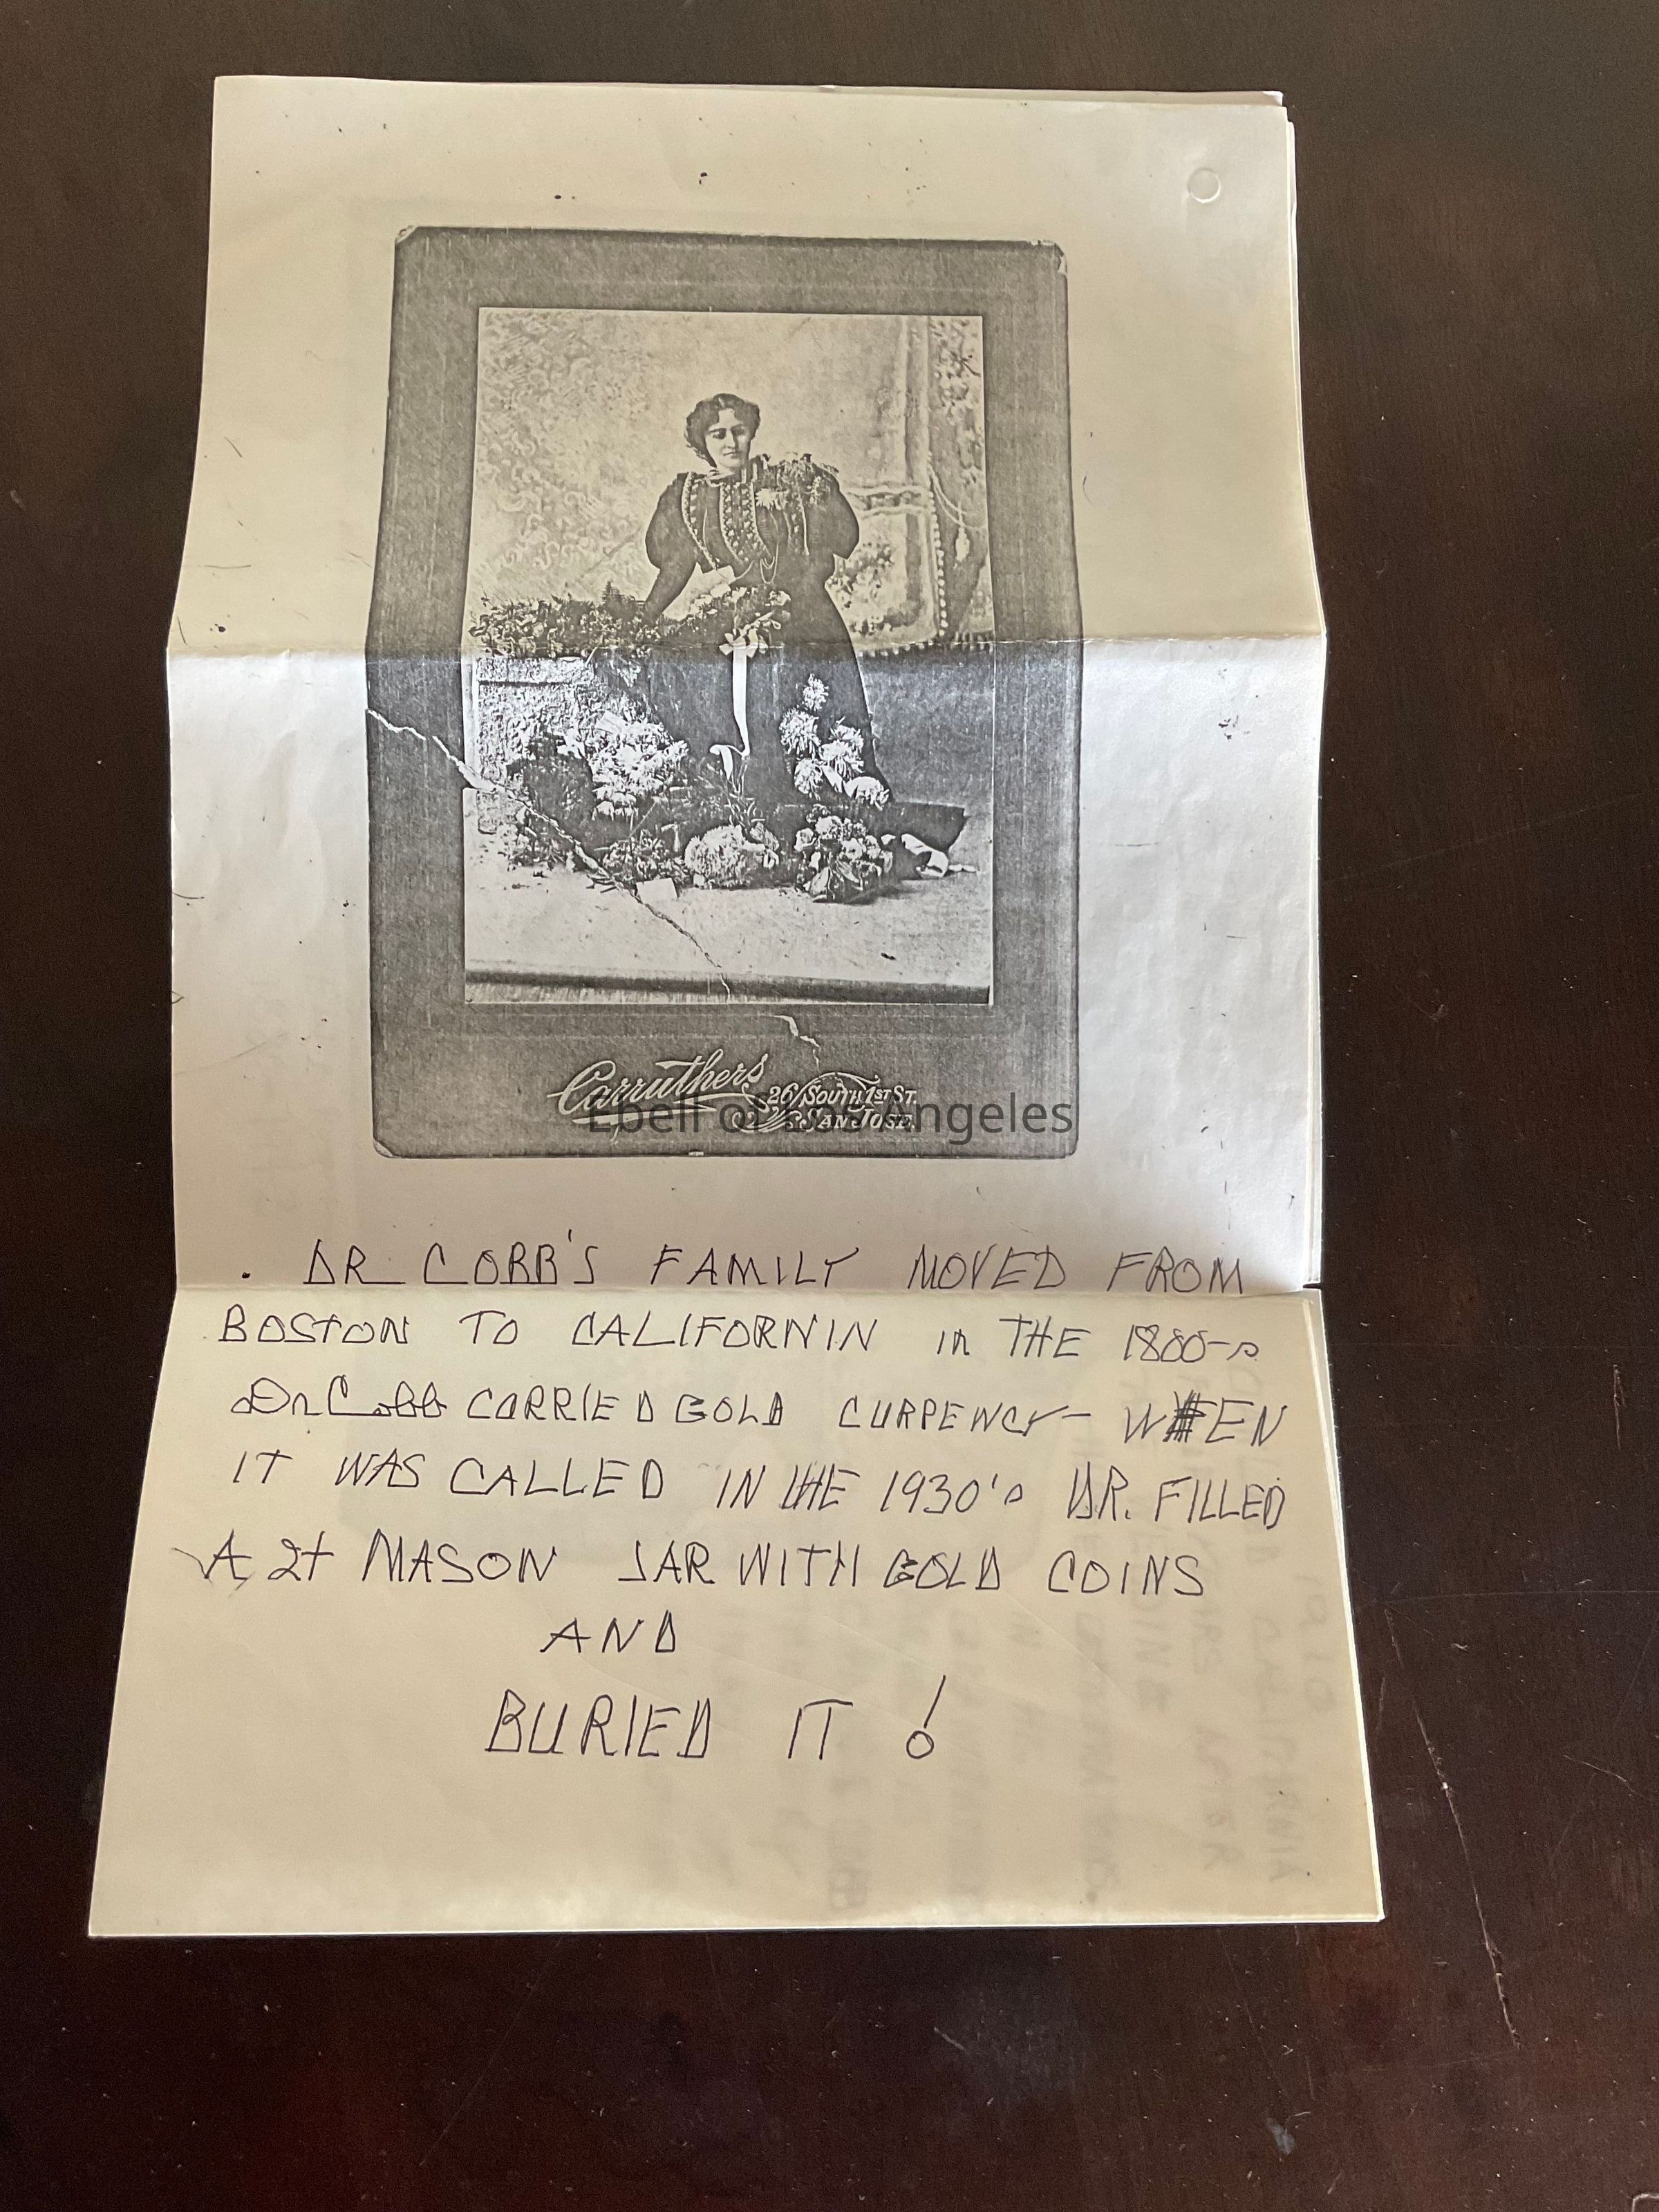 Carruthers
26 SOUTH 1ST ST.
SAN JOSE.
Ebell of Los Angeles
. DR COBB'S FAMILY MOVED FROM
BOSTON TO CALIFORNIN in THE 1800-s
Dr Cobb CARRIED GOLD CURRENCY - WHEN
IT WAS CALLED IN tHE 1930's DR. FILLED
A 2t MASON JAR WITH GOLD COINS
AND
BURIED IT !